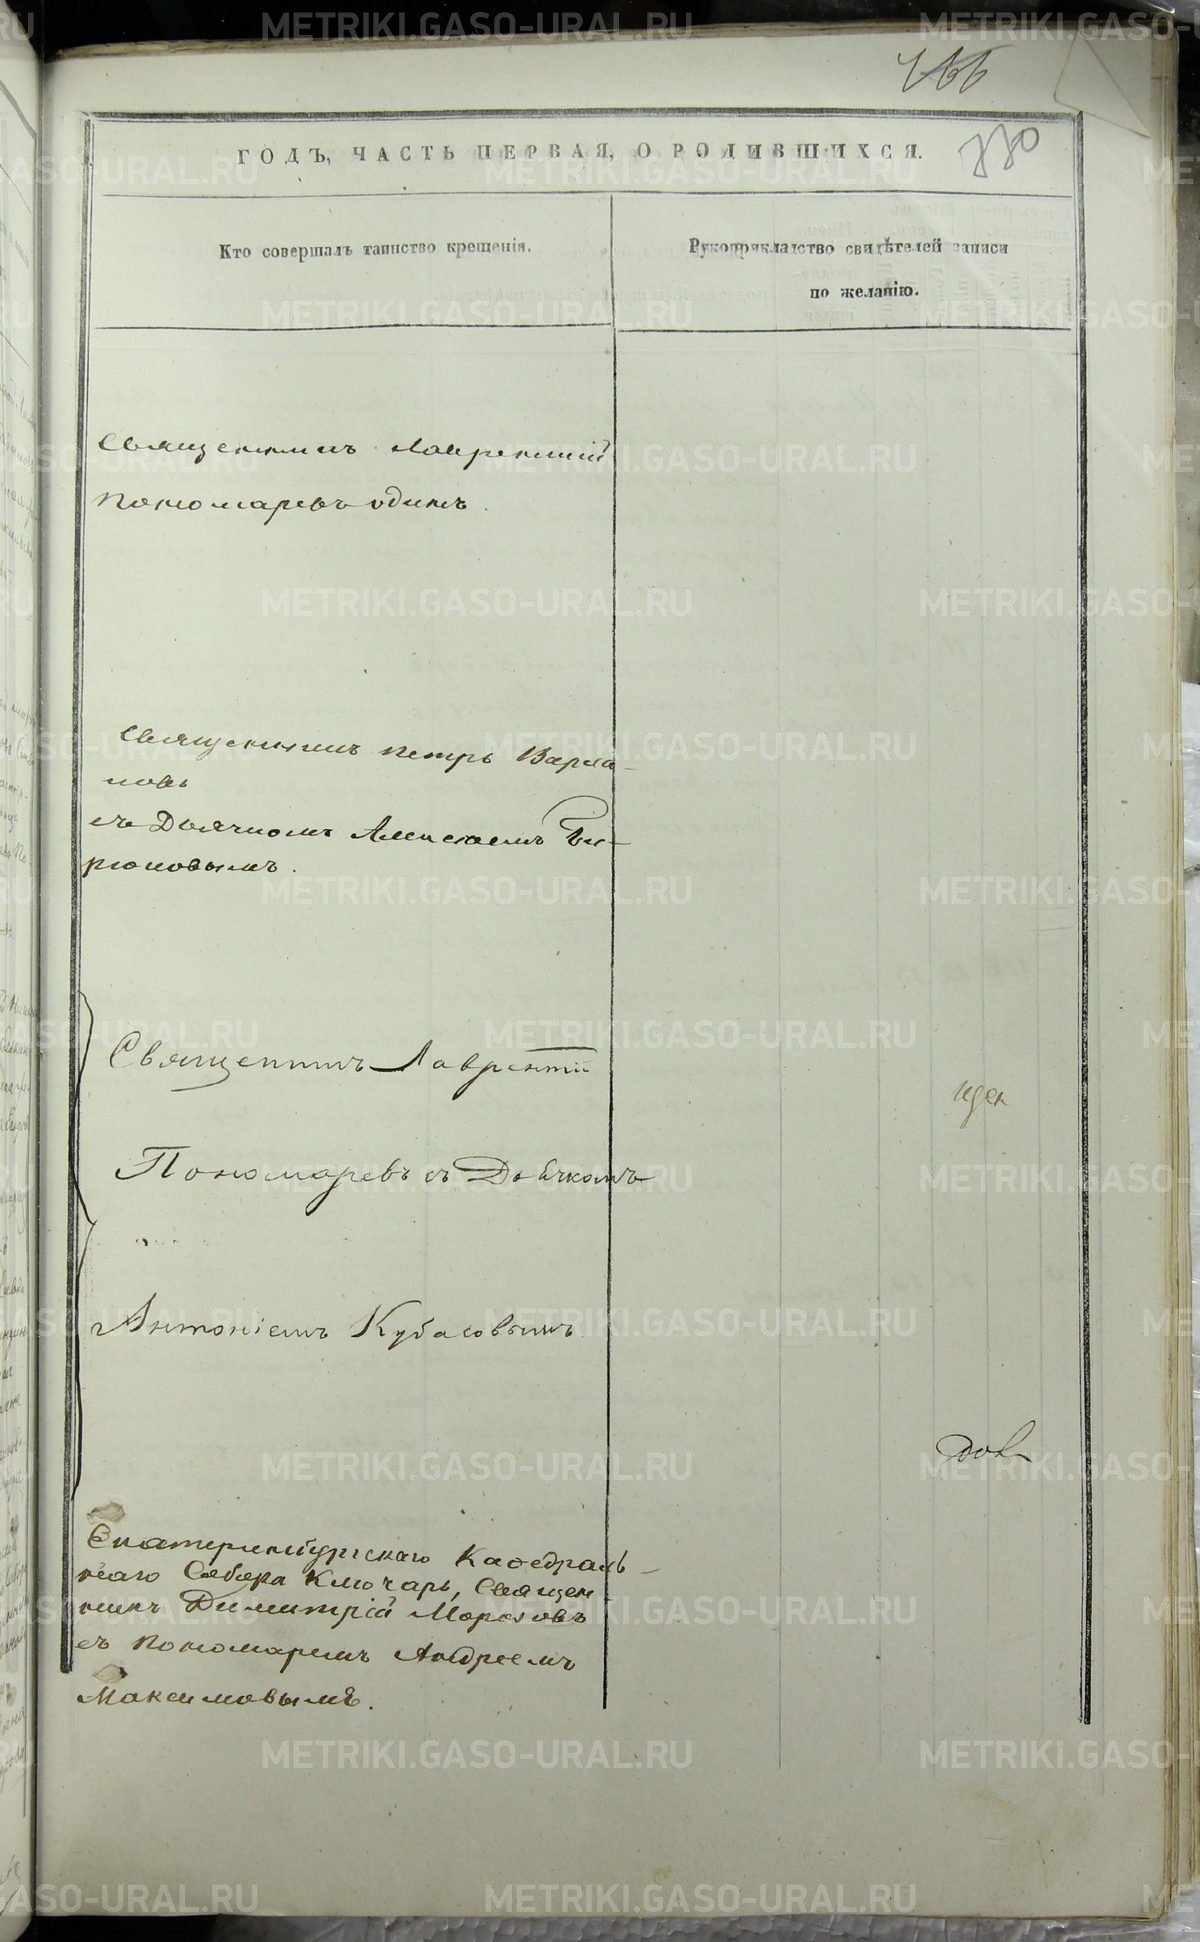 466
ГОДЪ, ЧАСТЬ ПЕРВАЯ, О РОДИВШИХСЯ.
330
Кто совершалъ таинство крещенія.
Рукоприкладство свидѣтелей записи
по желанію.
Священникъ Лаврентій
Пономаревъ одинъ.
Священникъ Петръ Варла-
мовъ
съ Дьячкомъ Алексѣемъ Би-
рюковымъ.
Священникъ Лаврентій
Пономаревъ съ Дьячкомъ
Антоніемъ Кубасовымъ
Екатеринбургскаго Каѳедраль-
наго Собора Ключарь, Священ-
никъ Димитрій Морозовъ
съ Пономаремъ Андреемъ
Максимовымъ.
METRIKI.GASO-URAL.RU